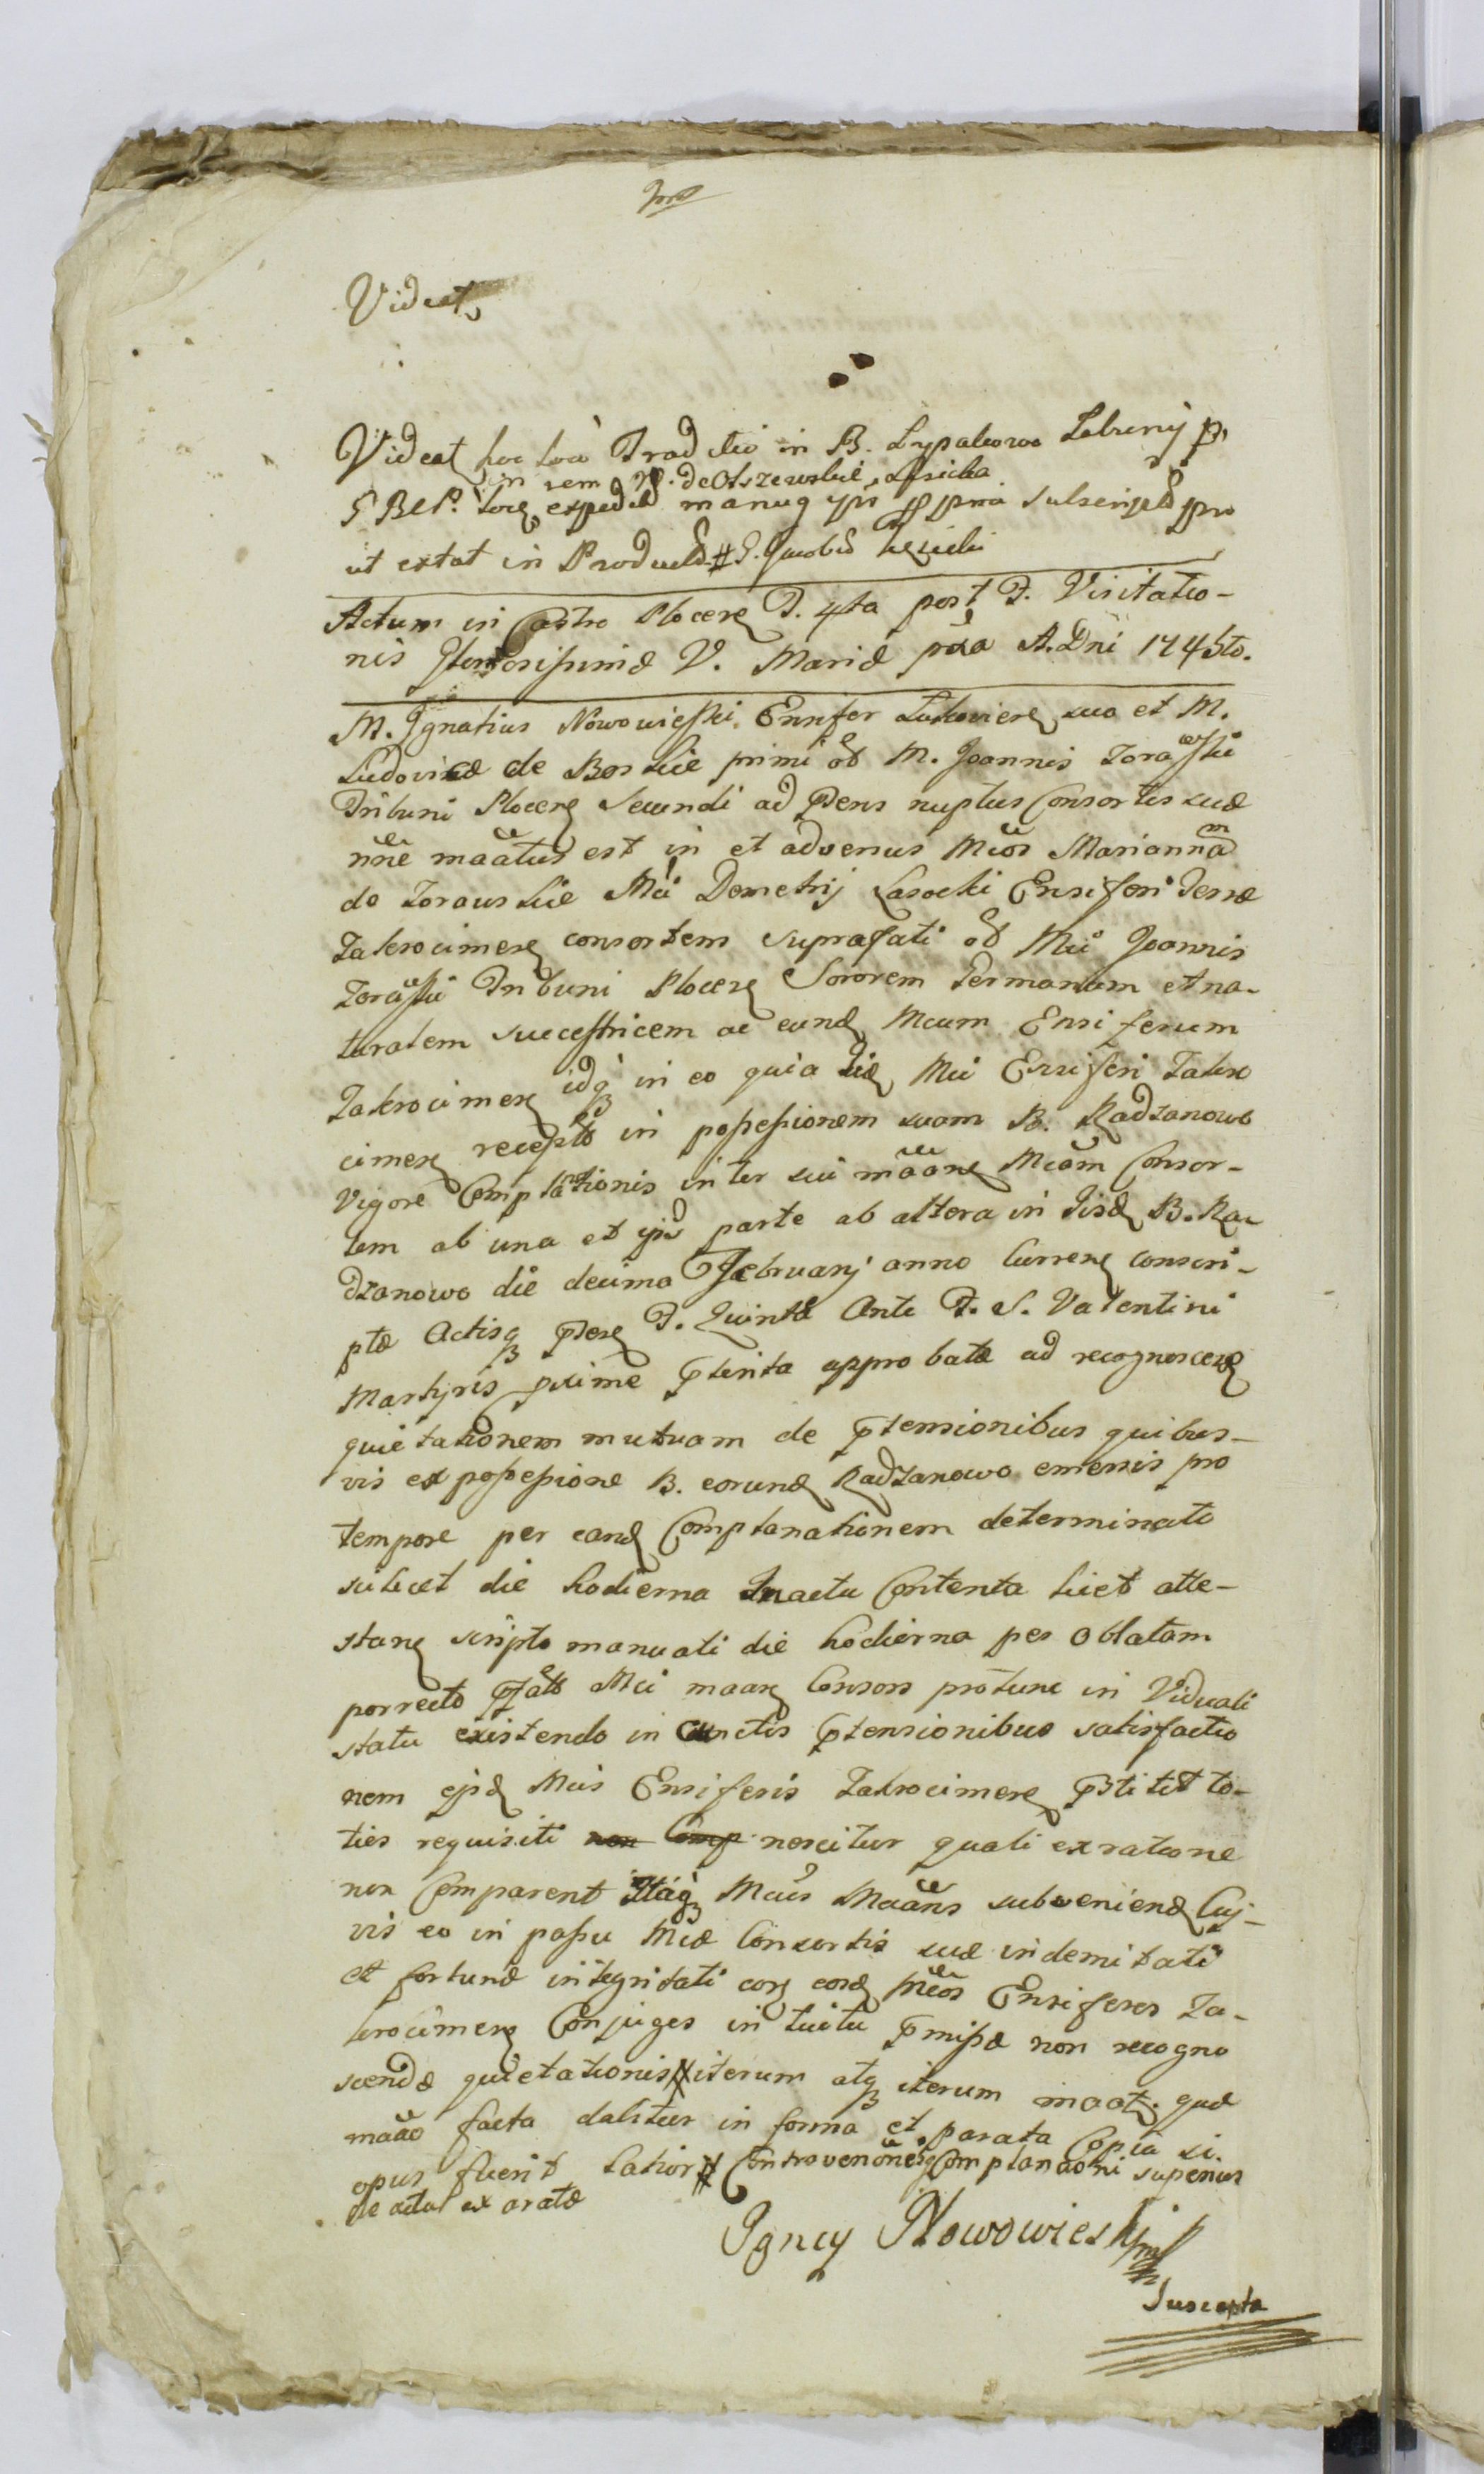 Videat
Videat hoc loco Traditio in B. Lypalewo Zabrury
in rem de Olszewskie Lasicka
G B e P. loci expedita manuq ipsi ppria subscripta pro
ut extat in Producto # G. Jacobo
Actum in Castro Plocen F. 4ta post F. Visitatio-
nis Gloriosissimæ V. Mariæ pxa A. Dni 1745to.
M. Ignatius Nowowieski Ensifer Lukovien suo et M.
Ludovicæ de Borskie primi ol M. Joannis Zorawski
Tribuni Plocen Secundi ad prens nuptus Consortis suæ
nne maatus est in et adversus Mcos Mariannam
de Zorawskie Mci Demetrij Lasocki Ensiferi Terræ
Zakrocimen consortem suprafati ol Mci Joannis
Zorawski Tribuni Plocen Sororem Germanam et na-
turalem successricem ac eund Mcum Ensiferum
Zakrocimen idq in eo quia iid Mci Ensiferi Zakro
cimen recepto in possessionem suam B. Radzanowo
Vigore Complanationis inter sui maane Mcam Consor-
tem ab una et ipsos parte ab altera in iisd B. Ra-
dzanowo die decima Februarij anno curren conscri-
ptæ Actisq pren F. Quinta Ante F. S. Valentini
Martyris pxime pterita approbatæ ad recognoscen
quietationem mutuam de ptensionibus quibus-
vis ex possessione B. eorund Radzanowo emersis pro
tempore per eand Complanationem determinato
scilicet die hodierna Inactu Contenta licet atte-
stan scripto manuali die hodierna per Oblatam
porrecto pfato Mci maan Consors protunc in Viduali
statu existendo in cunctis ptensionibus satisfactio
nem ejsd Mcis Ensiferis Zakrocimen pstitit to-
ties requisiti non Comp nescitur quali ex ratione
non Comparent Itaq Mcus Maans subveniend Cuj-
vis eo in passu Mcæ Consortis suæ indemitati
et fortunæ integritati cor eosd Mcos Ensiferos Za-
krocimen Conjuges intuitu pmissæ non recogno
scendæ quietationis # iterum atq iterum maat. quæ
maao facta dabitur in forma et parata Copia si.
opus fuerit lator # Controvenonesq Complanaoni superius
de actu exaratæ
Ignacy Nowowieski mp
Suscepta